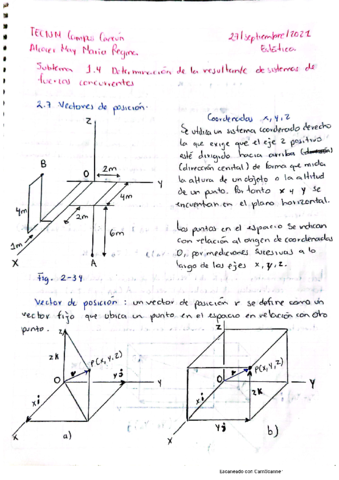 TECNM Campus Cancún
27/septiembre/2021
Alvarez May Maria Regina
Estática.
Subtema 1.4 Determinación de la resultante de sistemas de
fuerzas concurrentes
2.7 Vectores de posición.
Coordenadas x, y, z
Se utiliza un sistema coordenado derecho
lo que exige que el eje Z positivo
esté dirigido hacia arriba
(dirección cenital) de forma que mida
la altura de un objeto o la altitud
de un punto. Por tanto x y y se
encuentan en el plano horizontal.
Los puntos en el espacio se indican
con relación al origen de coordenadas
O, por mediciones sucesivas a lo
largo de los ejes x, y, z.
Z
B
O
2m
Y
4m
4m
2m
6m
1m
X
A
Fig. 2-34
Vector de posición: un vector de posición r se define como un
vector fijo que ubica un punto en el espacio en relación con otro
punto.
Z
zk
P(x,y,z)
r
O
Y
xi
yj
X
a)
Z
P(x,y,z)
r
O
Y
zk
xi
yj
X
b)
Escaneado con CamScanner